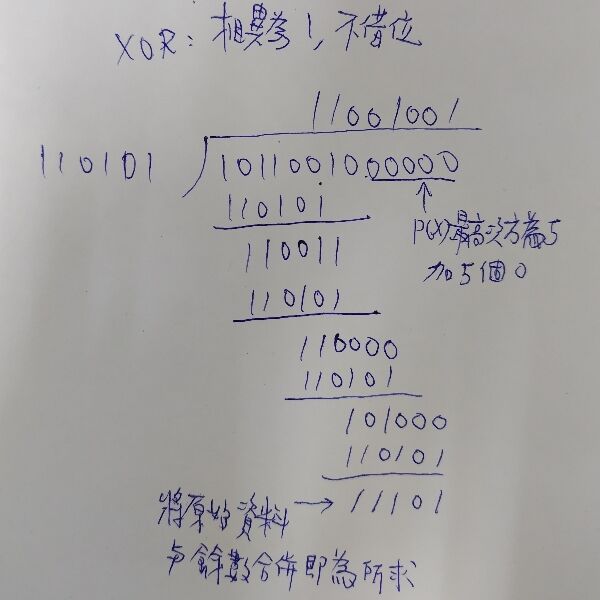 XOR: 相異為1,不借位
11001001
110101 1011001000000
110101
P(X)最高次方為5
110011
加5個0
110101
110000
110101
101000
110101
將原始資料 → 11101
與餘數合併即為所求